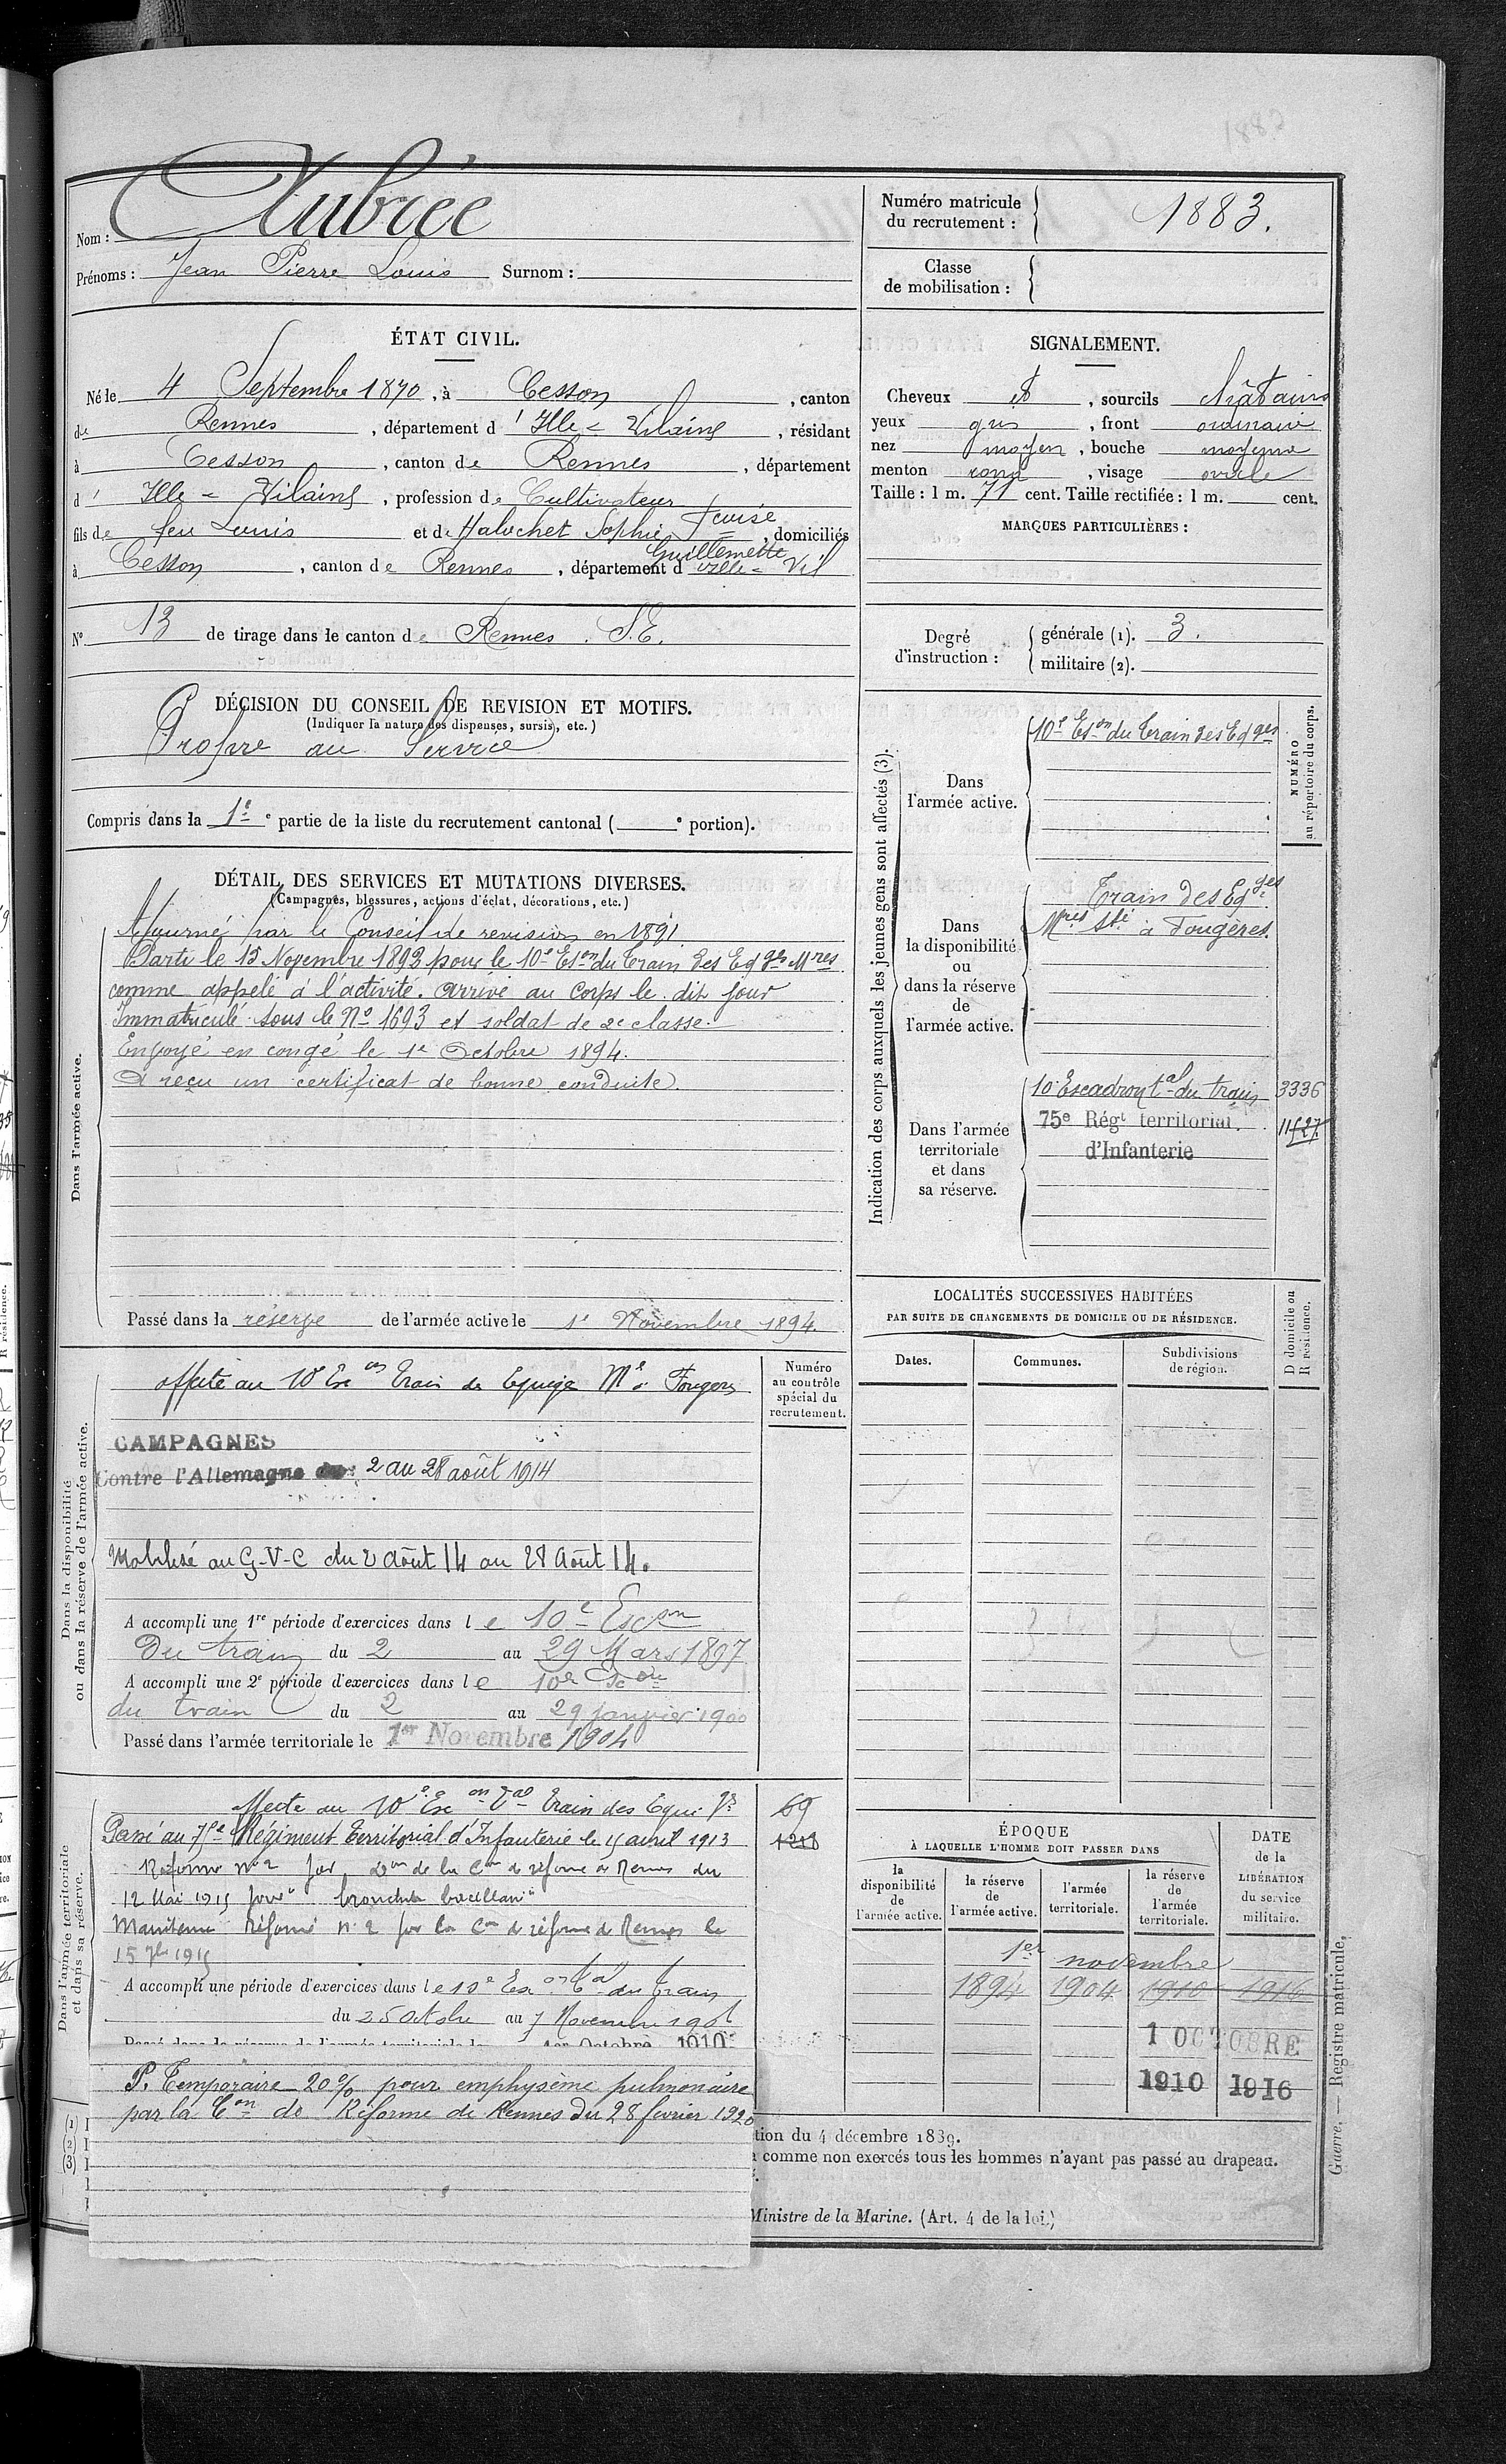 1883
Nom : Aubrée
Prénoms : Jean Pierre Louis Surnom :
Numéro matricule
du recrutement : 1883.
Classe
de mobilisation :
ÉTAT CIVIL.
Né le 4 Septembre 1870, à Cesson, canton
de Rennes, département d'Ille-&-Vilaine, résidant
à Cesson, canton de Rennes, département
d'Ille-&-Vilaine, profession de Cultivateur
fils de feu Louis et de Halochet Sophie Fcoise
Guillemette, domiciliés
à Cesson, canton de Rennes, département d'Ille-&-Vil
N° 13 de tirage dans le canton de Rennes. S.E.
SIGNALEMENT.
Cheveux et, sourcils châtains
yeux gris, front ordinaire
nez moyen, bouche moyenne
menton rond, visage ovale
Taille : 1 m. 71 cent. Taille rectifiée : 1 m. cent.
MARQUES PARTICULIÈRES :
Degré
d'instruction :
générale (1). 3.
militaire (2).
DÉCISION DU CONSEIL DE REVISION ET MOTIFS.
(Indiquer la nature des dispenses, sursis, etc.)
Propre au Service
Compris dans la 1e e partie de la liste du recrutement cantonal ( e portion).
DÉTAIL DES SERVICES ET MUTATIONS DIVERSES.
(Campagnes, blessures, actions d'éclat, décorations, etc.)
Dans l'armée active.
Ajourné par le Conseil de revision en 1891
Parti le 15 Novembre 1893 pour le 10e Eson du Train des Eqges Mres
comme appelé à l'activité. Arrivé au Corps le dit jour
Immatriculé sous le No 1693 et soldat de 2e classe.
Envoyé en congé le 1e Octobre 1894.
A reçu un certificat de bonne conduite.
Passé dans la réserve de l'armée active le 1e Novembre 1894.
Indication des corps auxquels les jeunes gens sont affectés (3).
NUMÉRO
au répertoire du corps.
Dans
l'armée active.
10e Eson du Train des Eqges
Dans
la disponibilité
ou
dans la réserve
de
l'armée active.
Train des Eqges
Mres à Fougères.
Dans l'armée
territoriale
et dans
sa réserve.
10 Escadron tal du train 3336
75e Régt territorial
d'Infanterie
LOCALITÉS SUCCESSIVES HABITÉES
PAR SUITE DE CHANGEMENTS DE DOMICILE OU DE RÉSIDENCE.
Dates.
Communes.
Subdivisions
de région.
D domicile ou
R résidence.
Dans la disponibilité
ou dans la réserve de l'armée active.
Numéro
au contrôle
spécial du
recrutement.
affecté au 10e Esc on Train des Equipa Mre Fougères
CAMPAGNES
Contre l'Allemagne du : 2 au 28 août 1914
Mobilisé au G-V-C du 2 Août 14 au 28 Août 14.
A accompli une 1re période d'exercices dans le 10e Escon
Du train du 2 au 29 Mars 1897
A accompli une 2e période d'exercices dans le 10e Scon
du train du 2 au 29 janvier 1900
Passé dans l'armée territoriale le 1er Novembre 1904
Dans l'armée territoriale
et dans sa réserve.
Affecté au 10e Esc on Tal Train des Equi ges 69
Passé au 75e Régiment Territorial d'Infanterie le 15 avril 1913 1218
Réformé no 2 par Don de la Con de réforme de Rennes du
12 Mai 1915 pour "bronchite bacillaire"
Maintenu Réformé no 2 par la Con de réforme de Rennes le
15 7bre 1915
A accompli une période d'exercices dans le 10e Esc on Tal du train
du 25 Octobre au 7 Novembre 190
Passé dans la réserve de l'armée territoriale le 1er Octobre 1910
P. Temporaire 20% pour emphysème pulmonaire
par la Con de Réforme de Rennes du 28 février 1920
ÉPOQUE
À LAQUELLE L'HOMME DOIT PASSER DANS
la
disponibilité
de
l'armée active.
la réserve
de
l'armée active.
l'armée
territoriale.
la réserve
de
l'armée
territoriale.
DATE
de la
LIBÉRATION
du service
militaire.
1er novembre
1894 1904 1910 1916
1 OCTOBRE
1910 1916
(1)
(2)
(3)
tion du 4 décembre 1889.
comme non exercés tous les hommes n'ayant pas passé au drapeau.
Ministre de la Marine. (Art. 4 de la loi.)
Guerre. — Registre matricule.